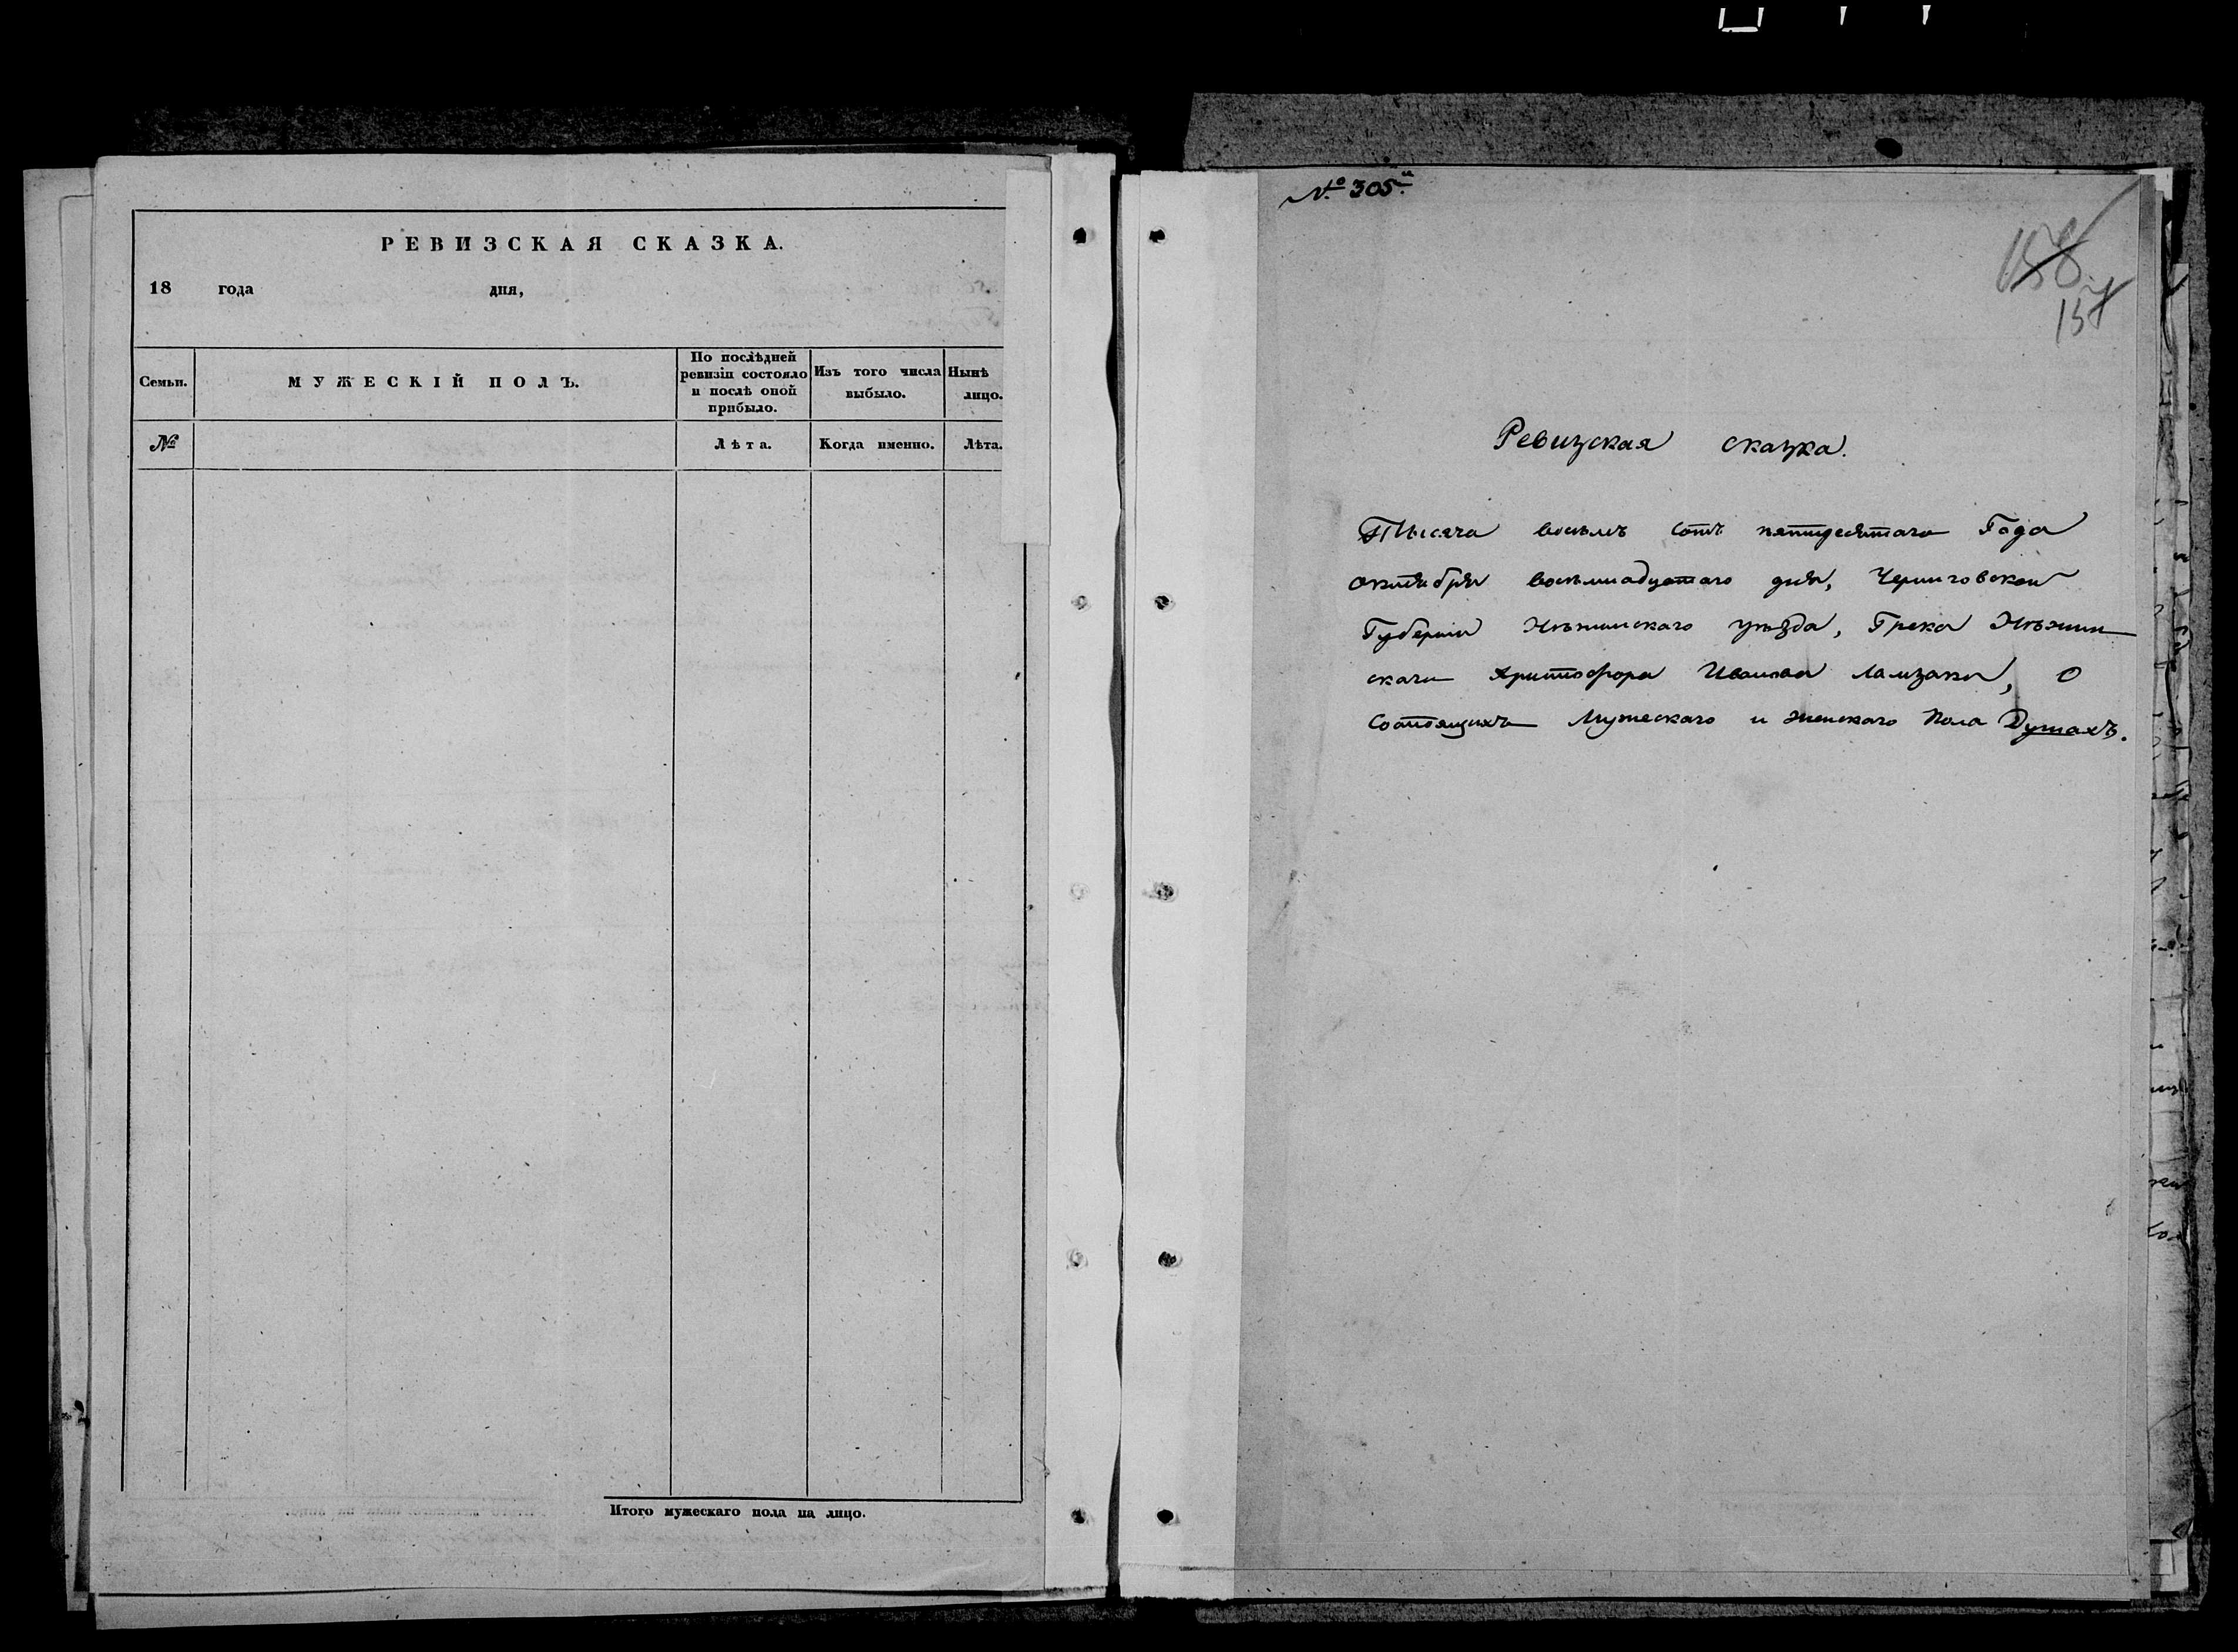 РЕВИЗСКАЯ СКАЗКА.
18 года дня,
Семьи.
МУЖЕСКІЙ ПОЛЪ.
По послѣдней
ревизіи состояло
и послѣ оной
прибыло.
Изъ того числа
выбыло.
Нынѣ
лицо.
№
Лѣта.
Когда именно.
Лѣта.
Итого мужескаго пола на лицо.
№ 305й
158
157
Ревизская сказка.
Тысяча восемъ сотъ пятидесятаго Года
октября восемнадцатаго дня, Черниговской
Губерніи Нѣжинскаго уѣзда, Грека Нѣжин
скаго Христофора Иванова
Состоящихъ Мужескаго и женскаго Пола Душахъ.